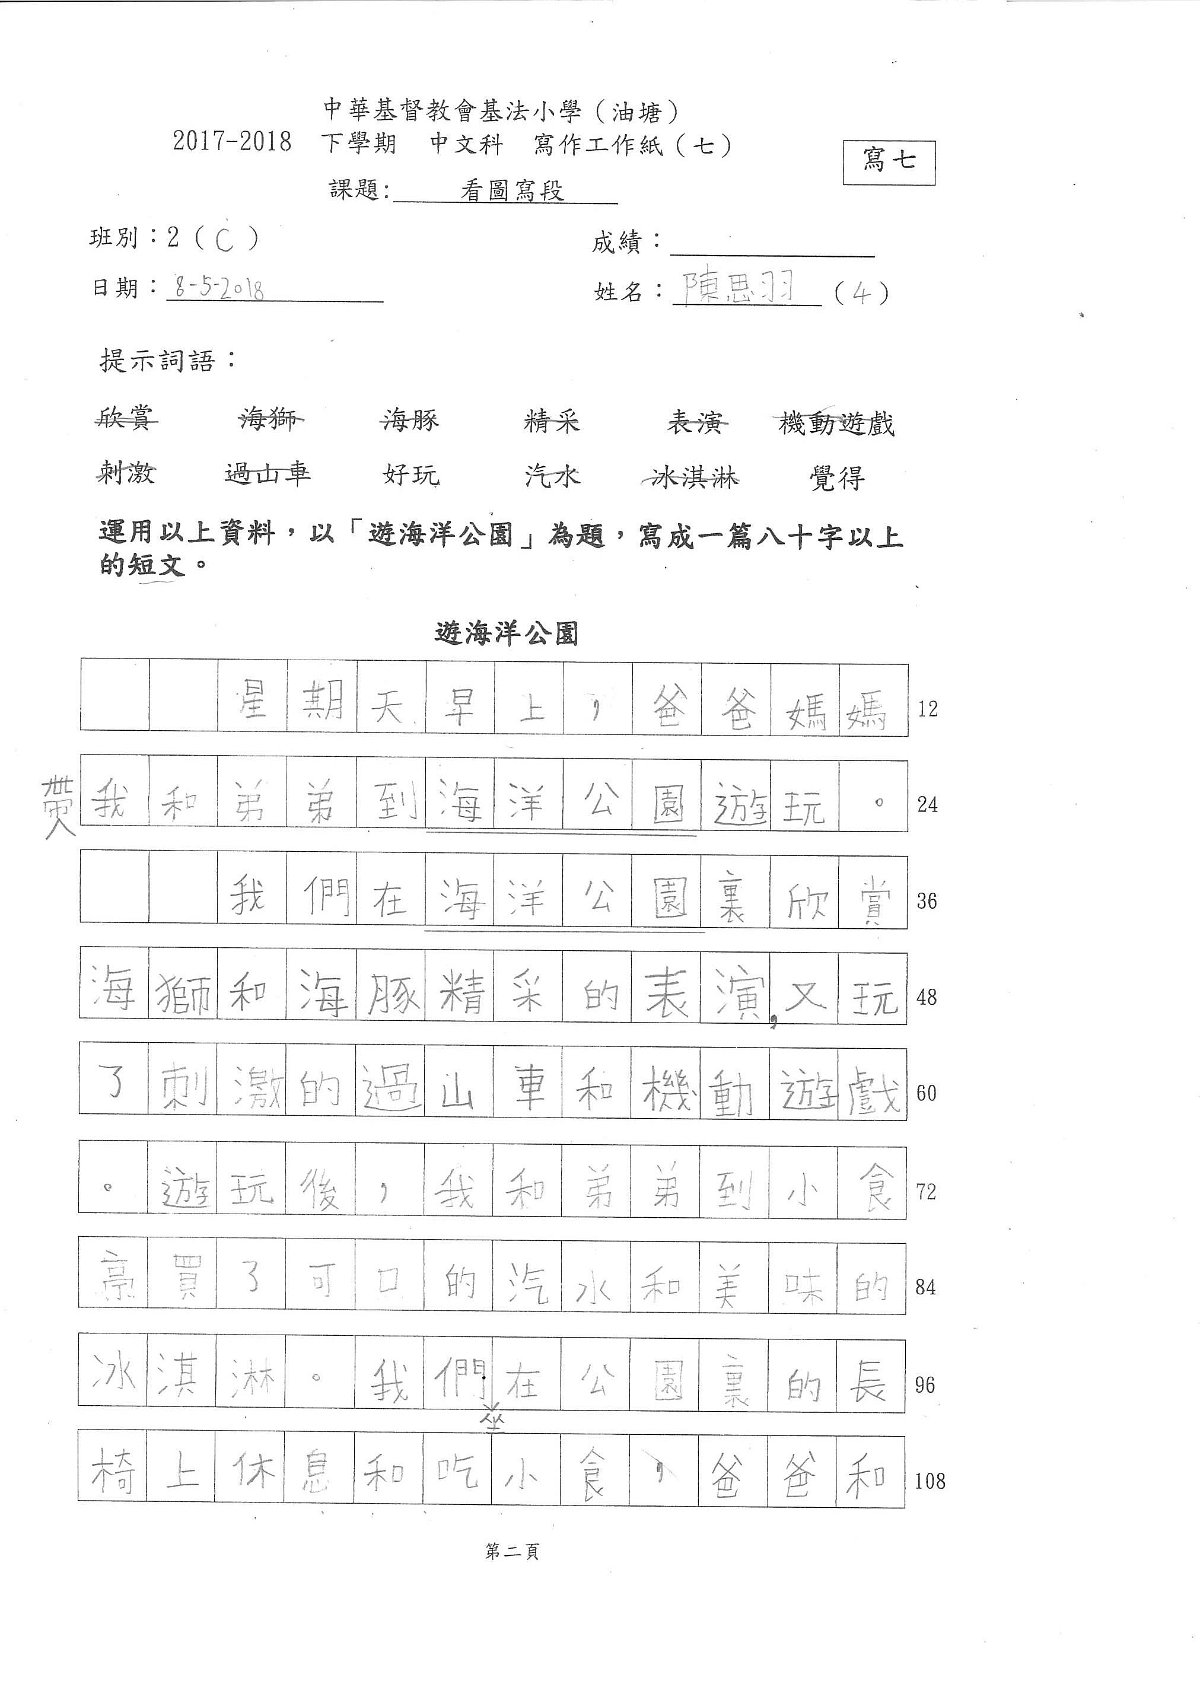 中華基督教會基法小學（油塘）
2017-2018 下學期 中文科 寫作工作紙（七）
寫七
課題: 看圖寫段
班別：2（C）
成績：
日期：8-5-2018
姓名：陳思羽（4）
提示詞語：
欣賞 海獅 海豚 精采 表演 機動遊戲
刺激 過山車 好玩 汽水 冰淇淋 覺得
運用以上資料，以「遊海洋公園」為題，寫成一篇八十字以上
的短文。
遊海洋公園
星期天早上，爸爸媽媽 12
帶我和弟弟到海洋公園遊玩。 24
我們在海洋公園裏欣賞 36
海獅和海豚精采的表演，又玩 48
了刺激的過山車和機動遊戲 60
。遊玩後，我和弟弟到小食 72
亭買了可口的汽水和美味的 84
冰淇淋。我們坐在公園裏的長 96
椅上休息和吃小食，爸爸和 108
第二頁